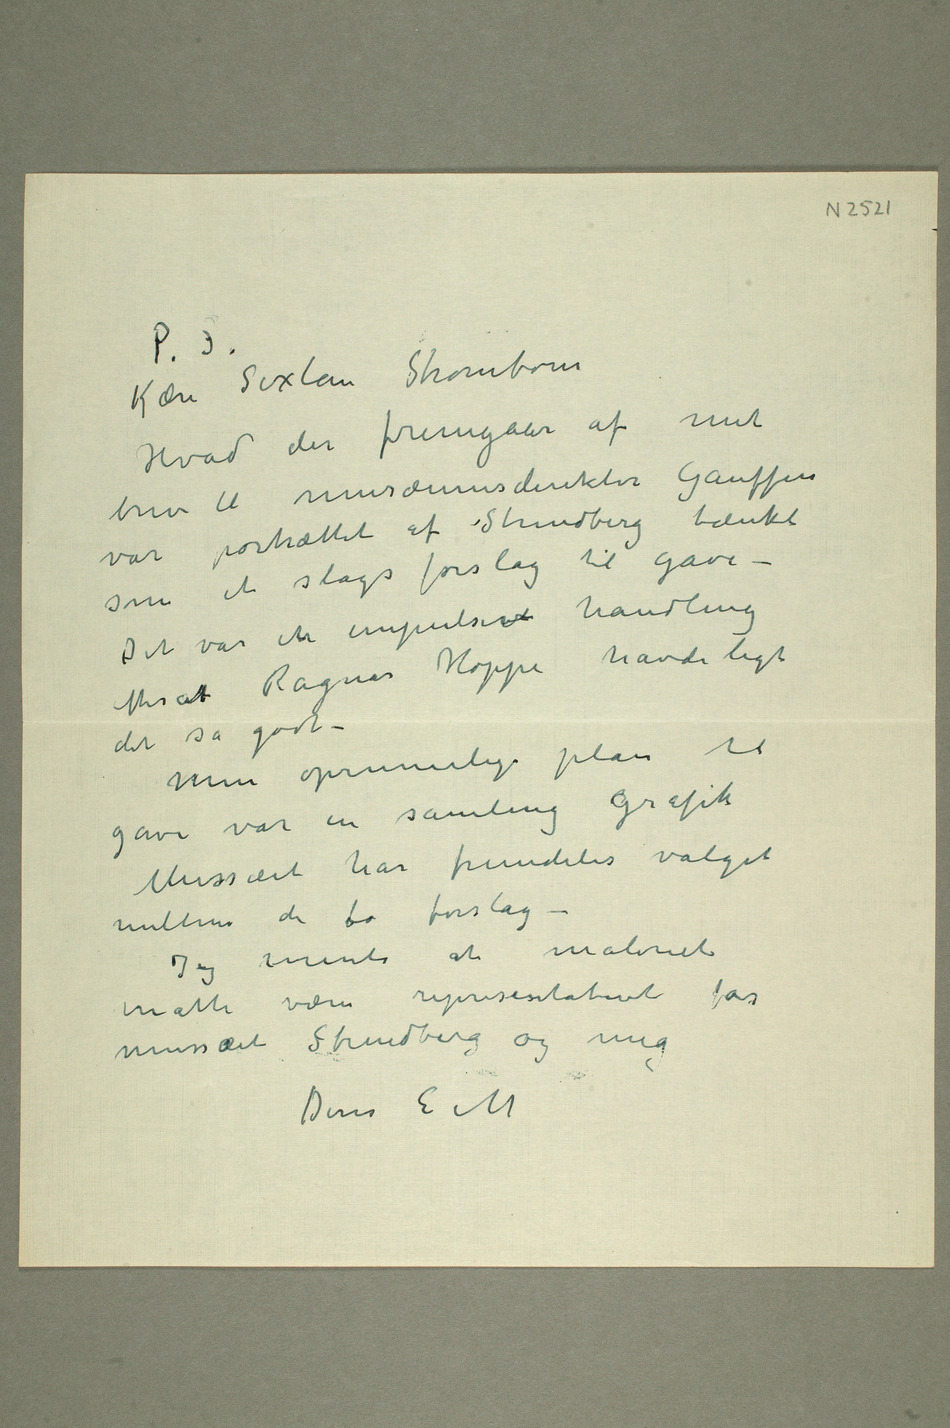 N 2521
P. S.
Kære Sixten Strømbom
Hvad der fremgaar af mit
brev til musæumsdirektør Gauffin
var portrættet af Strindberg tænkt
som et slags forslag til gave –
Det var en impulsiv handling
efterat Ragnar Hoppe havde ligt
det så godt –
Min oprinnelige plan til
gave var en samling Grafik
Mussæet har fremdeles valget
mellem de to forslag –
Jeg mente at maleriet
måtte være representativt for
mussæet Strindberg og mig
Deres E M